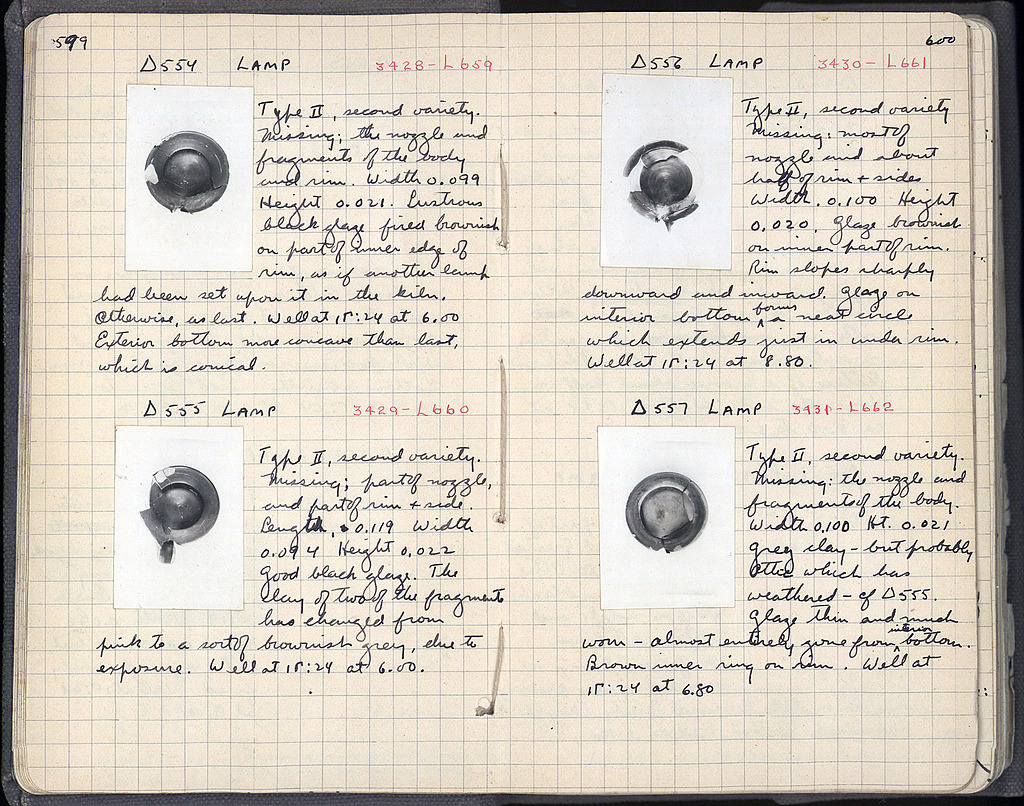 599
Δ554 LAMP 3428-L659
Type II, second variety.
Missing; the nozzle and
fragments of the body
and rim. Width 0.099
Height 0.021. Lustrous
black glaze fired brownish
on part of inner edge of
rim, as if another lamp
had been set upon it in the kiln.
Otherwise, as last. Well at ΙΓ:24 at 6.00
Exterior bottom more concave than last,
which is conical.
Δ555 LAMP 3429-L660
Type II, second variety.
Missing; part of nozzle,
and part of rim + side.
Length, 0.119 Width
0.094 Height 0.022
Good black glaze. The
clay of two of the fragments
has changed from
pink to a sort of brownish grey, due to
exposure. Well at ΙΓ:24 at 6.00.
600
Δ556 LAMP 3430-L661
Type II, second variety
Missing: most of
nozzle and about
half of rim + sides
Width. 0.100 Height
0.020. Glaze brownish
on inner part of rim.
Rim slopes sharply
downward and inward. Glaze on
interior bottom forms a neat circle
which extends just in under rim.
Well at ΙΓ:24 at 8.80.
Δ557 LAMP 3431-L662
Type II, second variety.
Missing: the nozzle and
fragments of the body.
Width 0.100 Ht. 0.021
Grey clay - but probably
Attic which has
weathered - cf Δ555.
Glaze thin and much
worn - almost entirely gone from interior bottom.
Brown inner ring on rim. Well at
ΙΓ:24 at 6.80